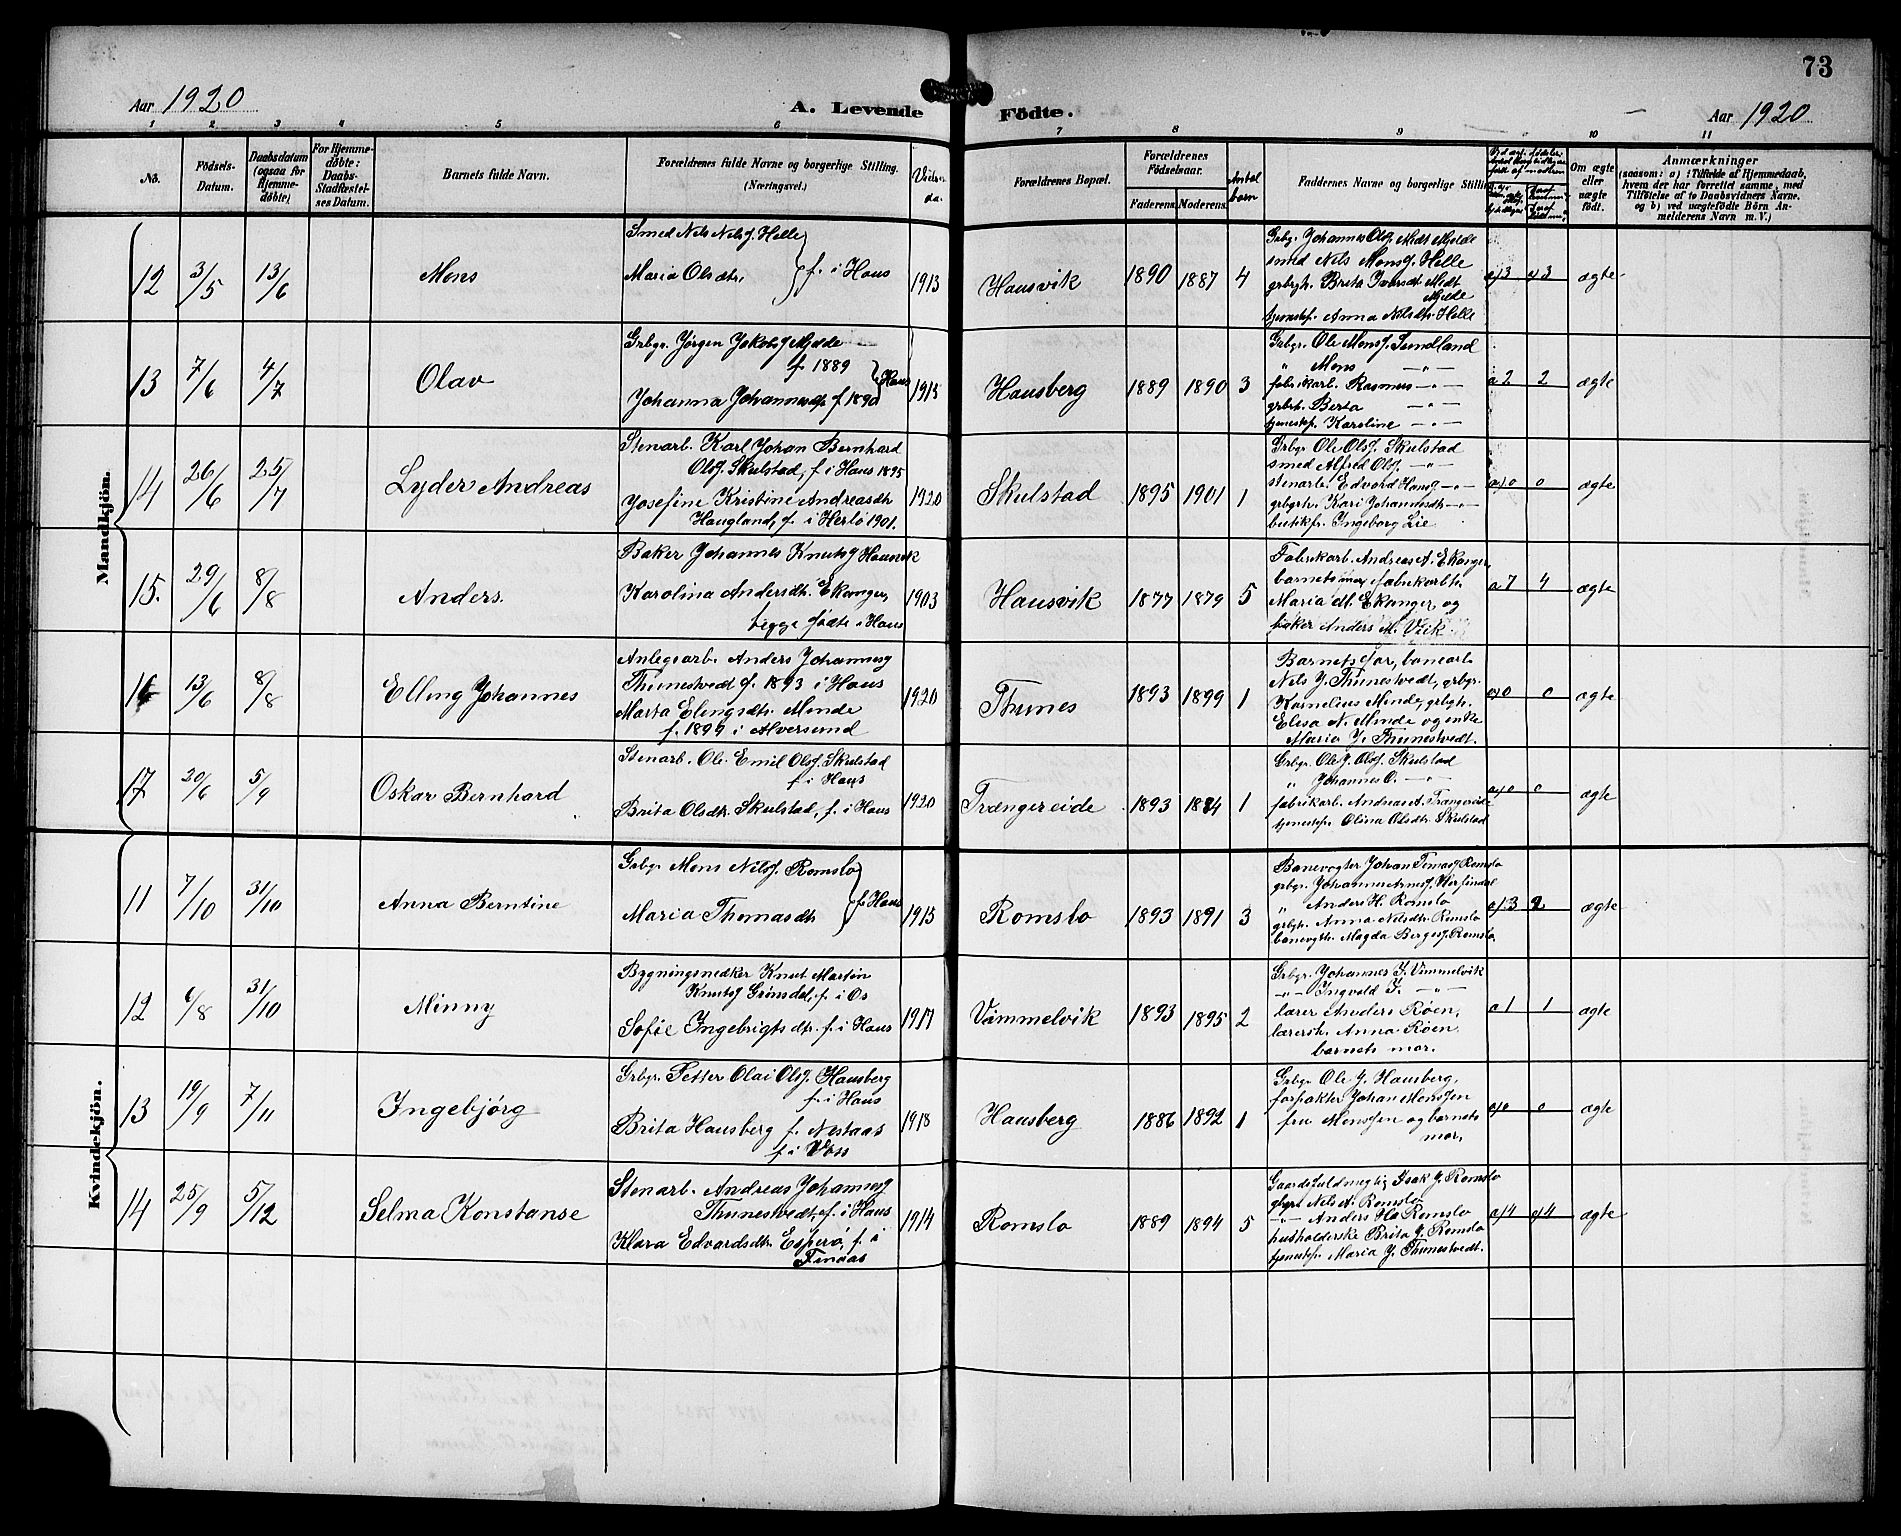 73
Aar 1920
A. Levende Födte.
Aar 1920
1 2 3 4 5 6 7 8 9 10 11
No.
Födsels-
Datum.
Daabsdatum
(ogsaa for
Hjemme-
døbte)
For Hjemme-
døbte:
Daabs-
Stadfæstel-
ses Datum.
Barnets fulde Navn.
Forældrenes fulde Navne og borgerlige Stilling.
(Næringsvei.)
Forældrenes Bopæl.
Forældrenes
Födselsaar.
Faderens. Moderens.
Antal
børn
Faddernes Navne og borgerlige Stilling
Om ægte
eller
uægte
født.
Anmærkninger
(saasom: a) i Tilfælde af Hjemmedaab,
hvem der har forrettet samme, med
Tilföielse af to Daabsvidners Navne.
og b) ved uægtefödte Börn An-
melderens Navn m. V.)
Mandkjön.
12 3/5 13/6 Mons
Smed Nils Nilsf. Helle
Maria Olsdtr. f. i Haus
1913 Hausvik 1890 1887 4
Grbgr. Johannes Olsf. Midt Mjelde
smed Nils Monsf. Helle
grbrgh. Brita Ivarsdt. Midt
Mjelde
tjenestep. Anna Nilsdtr. Helle
a)3 a)3 ægte
13 7/6 4/7 Olav
Grbgr. Jörgen Jakobsf Mjelde
f. 1889
Johanna Johannesdtr f. 1890 Haus
1915 Hausberg 1889 1890 3
Grbgr. Ole Monsf. Sundland
" Mons —"—
fabrikarb. Rasmus —"—
grbrh. Berta —"—
tjenestep. Karoline —"—
a 2 2 ægte
14 26/6 25/7 Lyder Andreas
Stenarb. Karl Johan Bernhard
Olsf. Skulstad, f. i Haus 1895
Josefine Kristine Andreasdtr
Haugland, f. i Herlö 1901.
1920 Skulstad 1895 1901 1
Grbgr. Ole Olsf. Skulstad
smed Alfred Olsf. —"—
stenarb. Edvard Hansf —"—
grbgrh. Kari Johannesdtr —"—
butikfr. Ingeborg Lie
a)0 0 ægte
15. 29/6 8/8 Anders.
Baker Johannes Knutsf Hausvik
Karolina Andersdtr. Ekanger,
begge födte i Haus
1903 Hausvik 1877 1879 5
Fabrikarb. Andreas A. Ekanger,
barnets mor, fabrikarbh.
Maria M. Ekanger, og
baker Anders M. Viik
a 7 4 ægte
16 13/6 8/8 Elling Johannes
Anlegsarb. Anders Johannesf
Thunestvedt f. 1893 i Haus
Marta Elingsdtr. Minde
f. 1899 i Alversund
1920 Thunes 1893 1899 1
Barnets far, banearb.
Nils J. Thunestvedt, grbgr.
Kornelius Minde, grbgh.
Elisa N. Minde og enke
Maria J. Thunestvedt.
a)0 0 ægte
17 20/6 5/9 Oskar Bernhard
Stenarb. Ole Emil Olsf. Skulstad
f. i Haus
Brita Olsdtr. Skulstad, f. i Haus
1920 Trængereide 1893 1884 1
Grbgr. Ole J. Olsf. Skulstad
" Johannes O. —"—
fabrikarb. Andreas A. Trængereide
tjenestep. Olina Olsdtr. Skulstad
a)0 0 ægte
Kvindekjön.
11 7/10 31/10 Anna Berntine
Grbgr. Mons Nilsf. Romslo
Maria Thomasdtr f. Haus
1915 Romslo 1893 1891 3
Banevogter Johan Tomasf Romslo
grbgr. Johannes Arnesf. Herfindal
" Anders H. Romslo
grbgh. Anna Nilsdtr. Romslo
banevgth. Magda Bergesf. Romslo.
a)3 2 ægte
12 6/8 31/10 Minny
Bygningsnedker Knut Martin
Knutsf Grönsdal, f. i Os
Sofie Ingebrigtsdtr. f. i Haus
1917 Vimmelvik 1893 1895 2
Grbgr. Johannes I. Vimmelvik
—"— Ingvald I. —"—
lærer Anders Röen,
lærerh. Anna Röen
barnets mor.
a 1 1 ægte
13 19/9 7/11 Ingebjörg
Grbgr. Petter Olai Olsf. Hausberg
f. i Haus
Brita Hausberg f. Nestaas
f. i Voss
1918 Hausberg 1886 1892 1
Grbgr Ole J. Hausberg,
forpakter Johan Monssen
fru Monssen og barnets
mor.
a)0 0 ægte
14 25/9 5/12 Selma Konstanse
Stenarb. Andreas Johannesf
Thunestvedt, f. i Haus
Klara Edvardsdtr. Esperö, f. i
Finaas
1914 Romslo 1889 1894 5
Gaardsfuldmegtig Isak J. Romslo
gbgr Nils A. Romslo
—"— Anders Hs Romslo
husholderske Brita J. Romslo
tjenestep. Maria J. Thunestvedt.
a)4 a)4 ægte